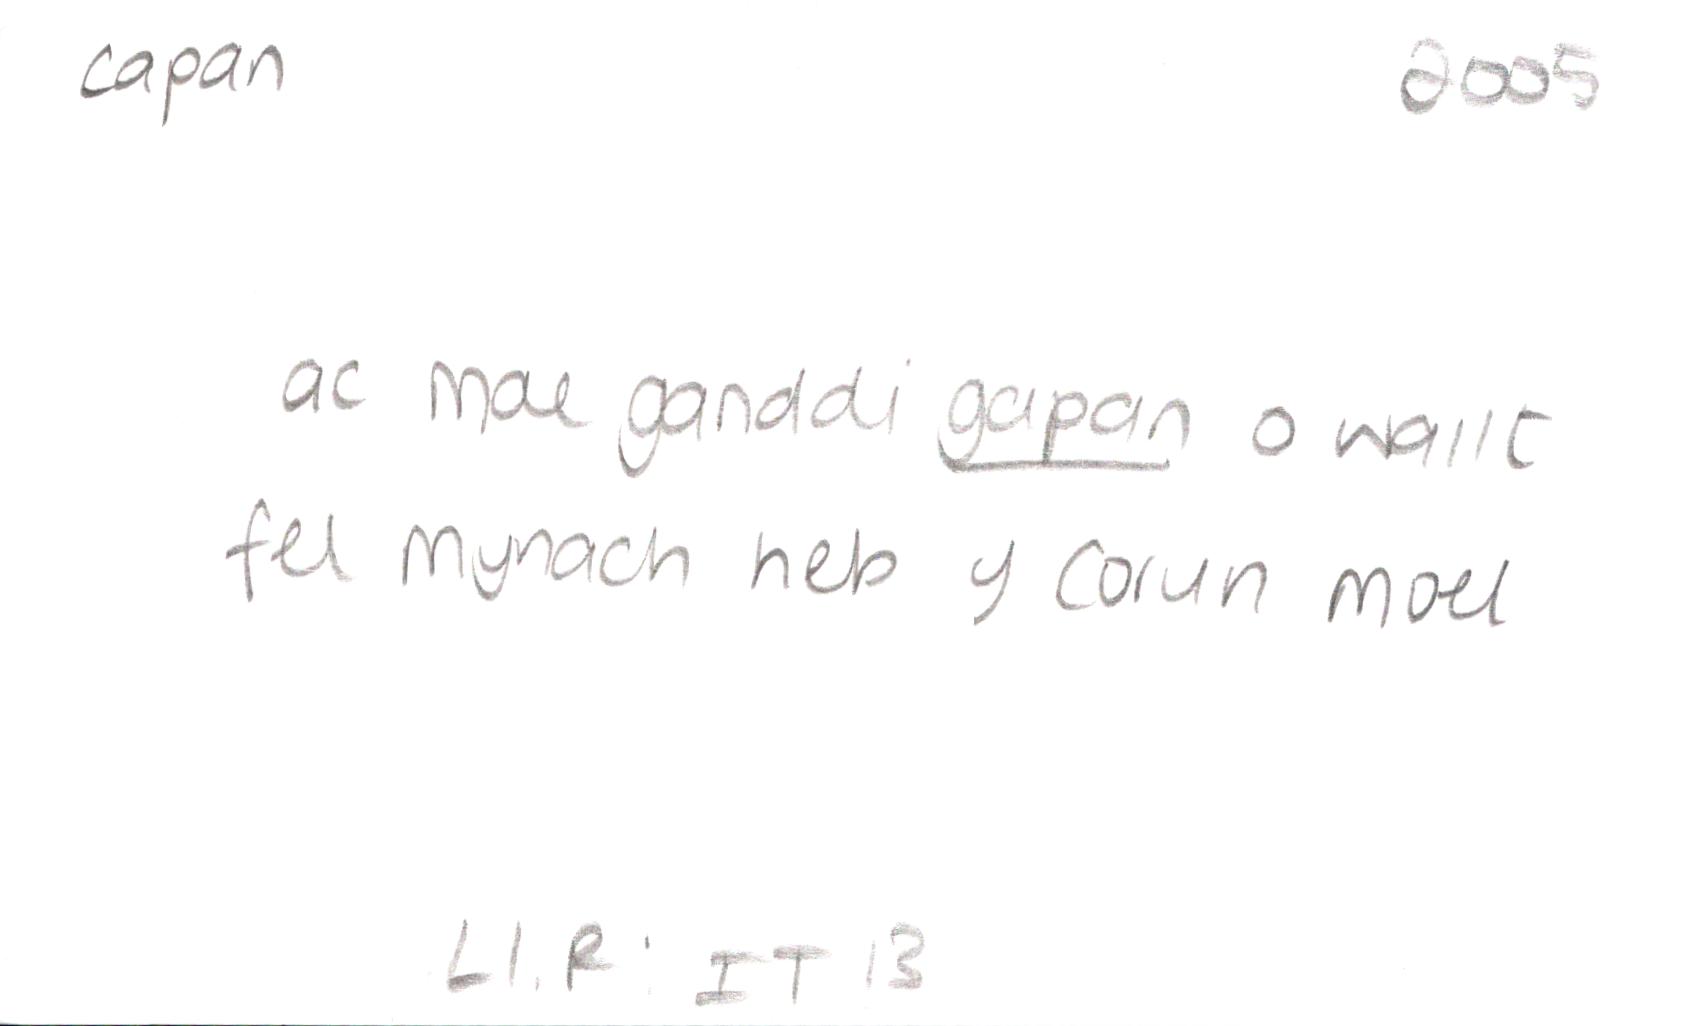 capan 2005
ac mae ganddi gapan o wallt
fel mynach heb y corun moel
Ll.R: IT 13